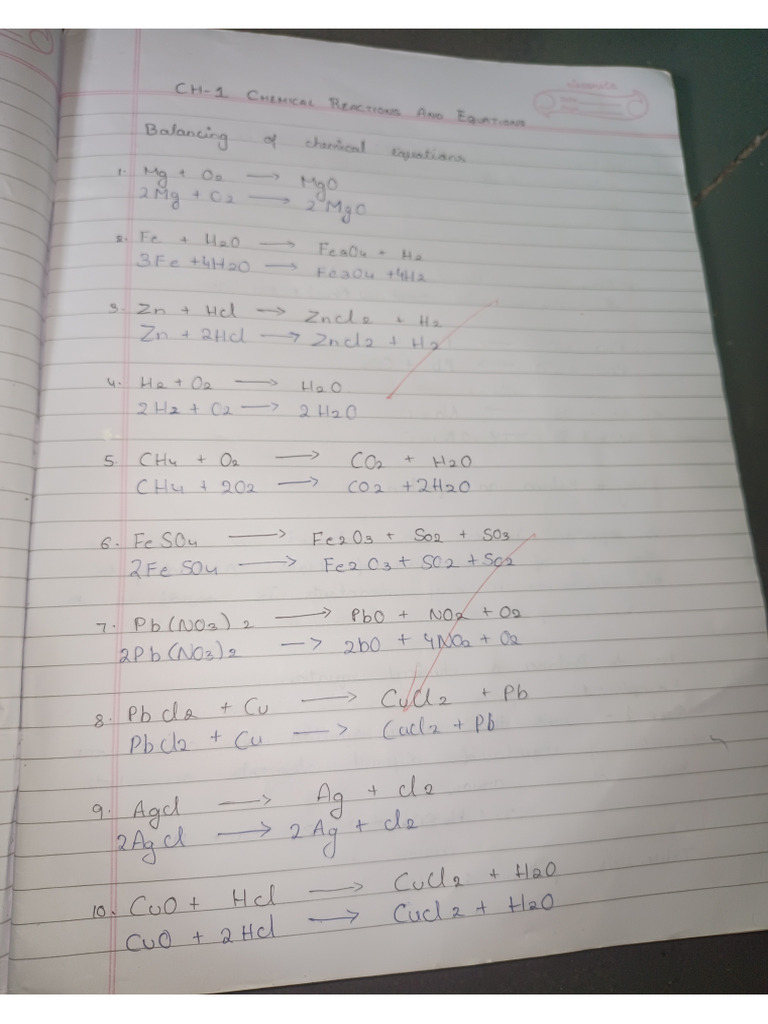 CH-1 CHEMICAL REACTIONS AND EQUATIONS
Balancing of chemical equations
1. Mg + O2 → MgO
2Mg + O2 → 2MgO
2. Fe + H2O → Fe3O4 + H2
3Fe + 4H2O → Fe3O4 + 4H2
3. Zn + Hcl → Zncl2 + H2
Zn + 2Hcl → Zncl2 + H2
4. H2 + O2 → H2O
2H2 + O2 → 2H2O
5. CH4 + O2 → CO2 + H2O
CH4 + 2O2 → CO2 + 2H2O
6. FeSO4 → Fe2O3 + SO2 + SO3
2FeSO4 → Fe2O3 + SO2 + SO2
7. Pb(NO3)2 → PbO + NO2 + O2
2Pb(NO3)2 → 2bO + 4NO2 + O2
8. Pbcl2 + Cu → CuCl2 + Pb
Pbcl2 + Cu → Cucl2 + Pb
9. Agcl → Ag + cl2
2Agcl → 2Ag + cl2
10. CuO + Hcl → CuCl2 + H2O
CuO + 2Hcl → Cucl2 + H2O